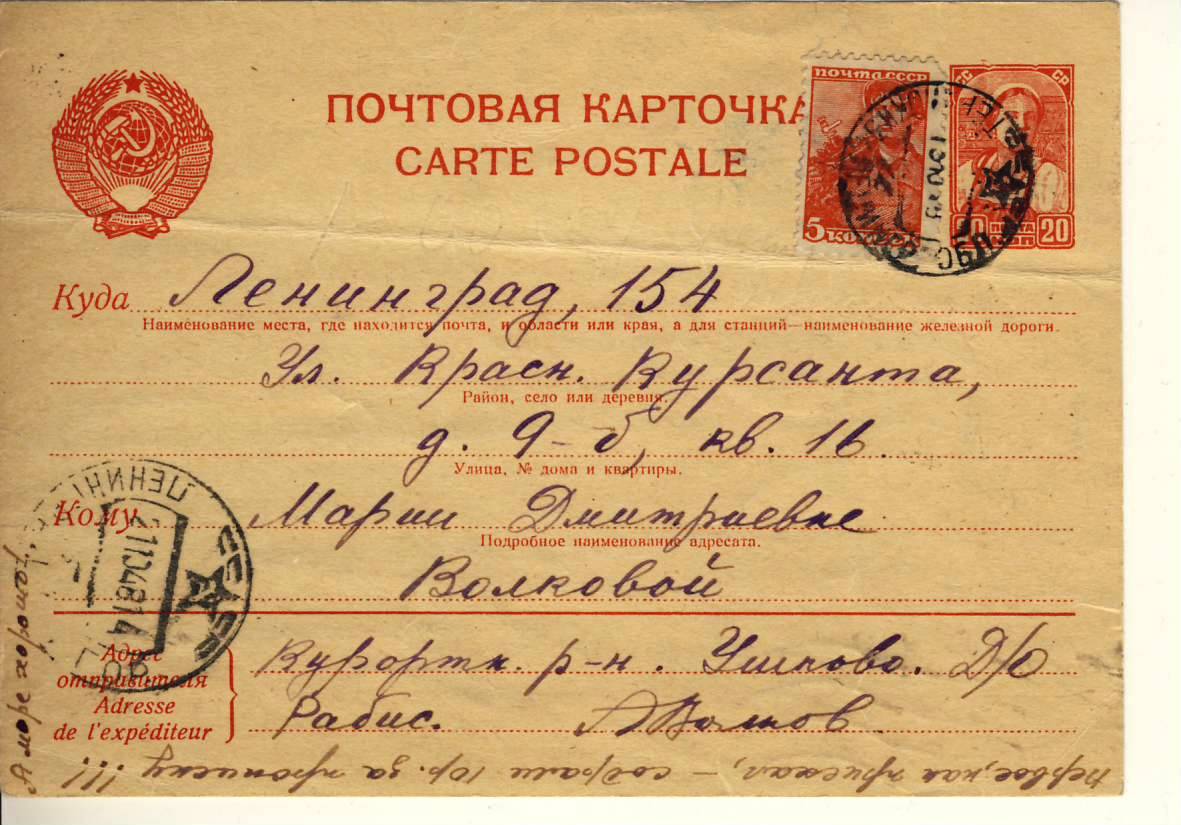 ПОЧТОВАЯ КАРТОЧКА
CARTE POSTALE
ПОЧТА СССР
5 КОПЕЕК
СС СР
20 ПОЧТА 20
Куда Ленинград, 154
Наименование места, где находится почта, и области или края, а для станций—наименование железной дороги.
Ул. Красн. Курсанта,
Район, село или деревня.
д. 9-б, кв. 16.
Улица, № дома и квартиры.
Кому Марии Дмитриевне
Подробное наименование адресата.
Волковой
Адрес отправителя
Adresse de l'expéditeur
Курортн. р-н. Ушково. Д/О
Рабис. АВолков
первое, как приехал, – содрали 10р. за прописку !!!
А море хорошо!
ЛЕНИНГ